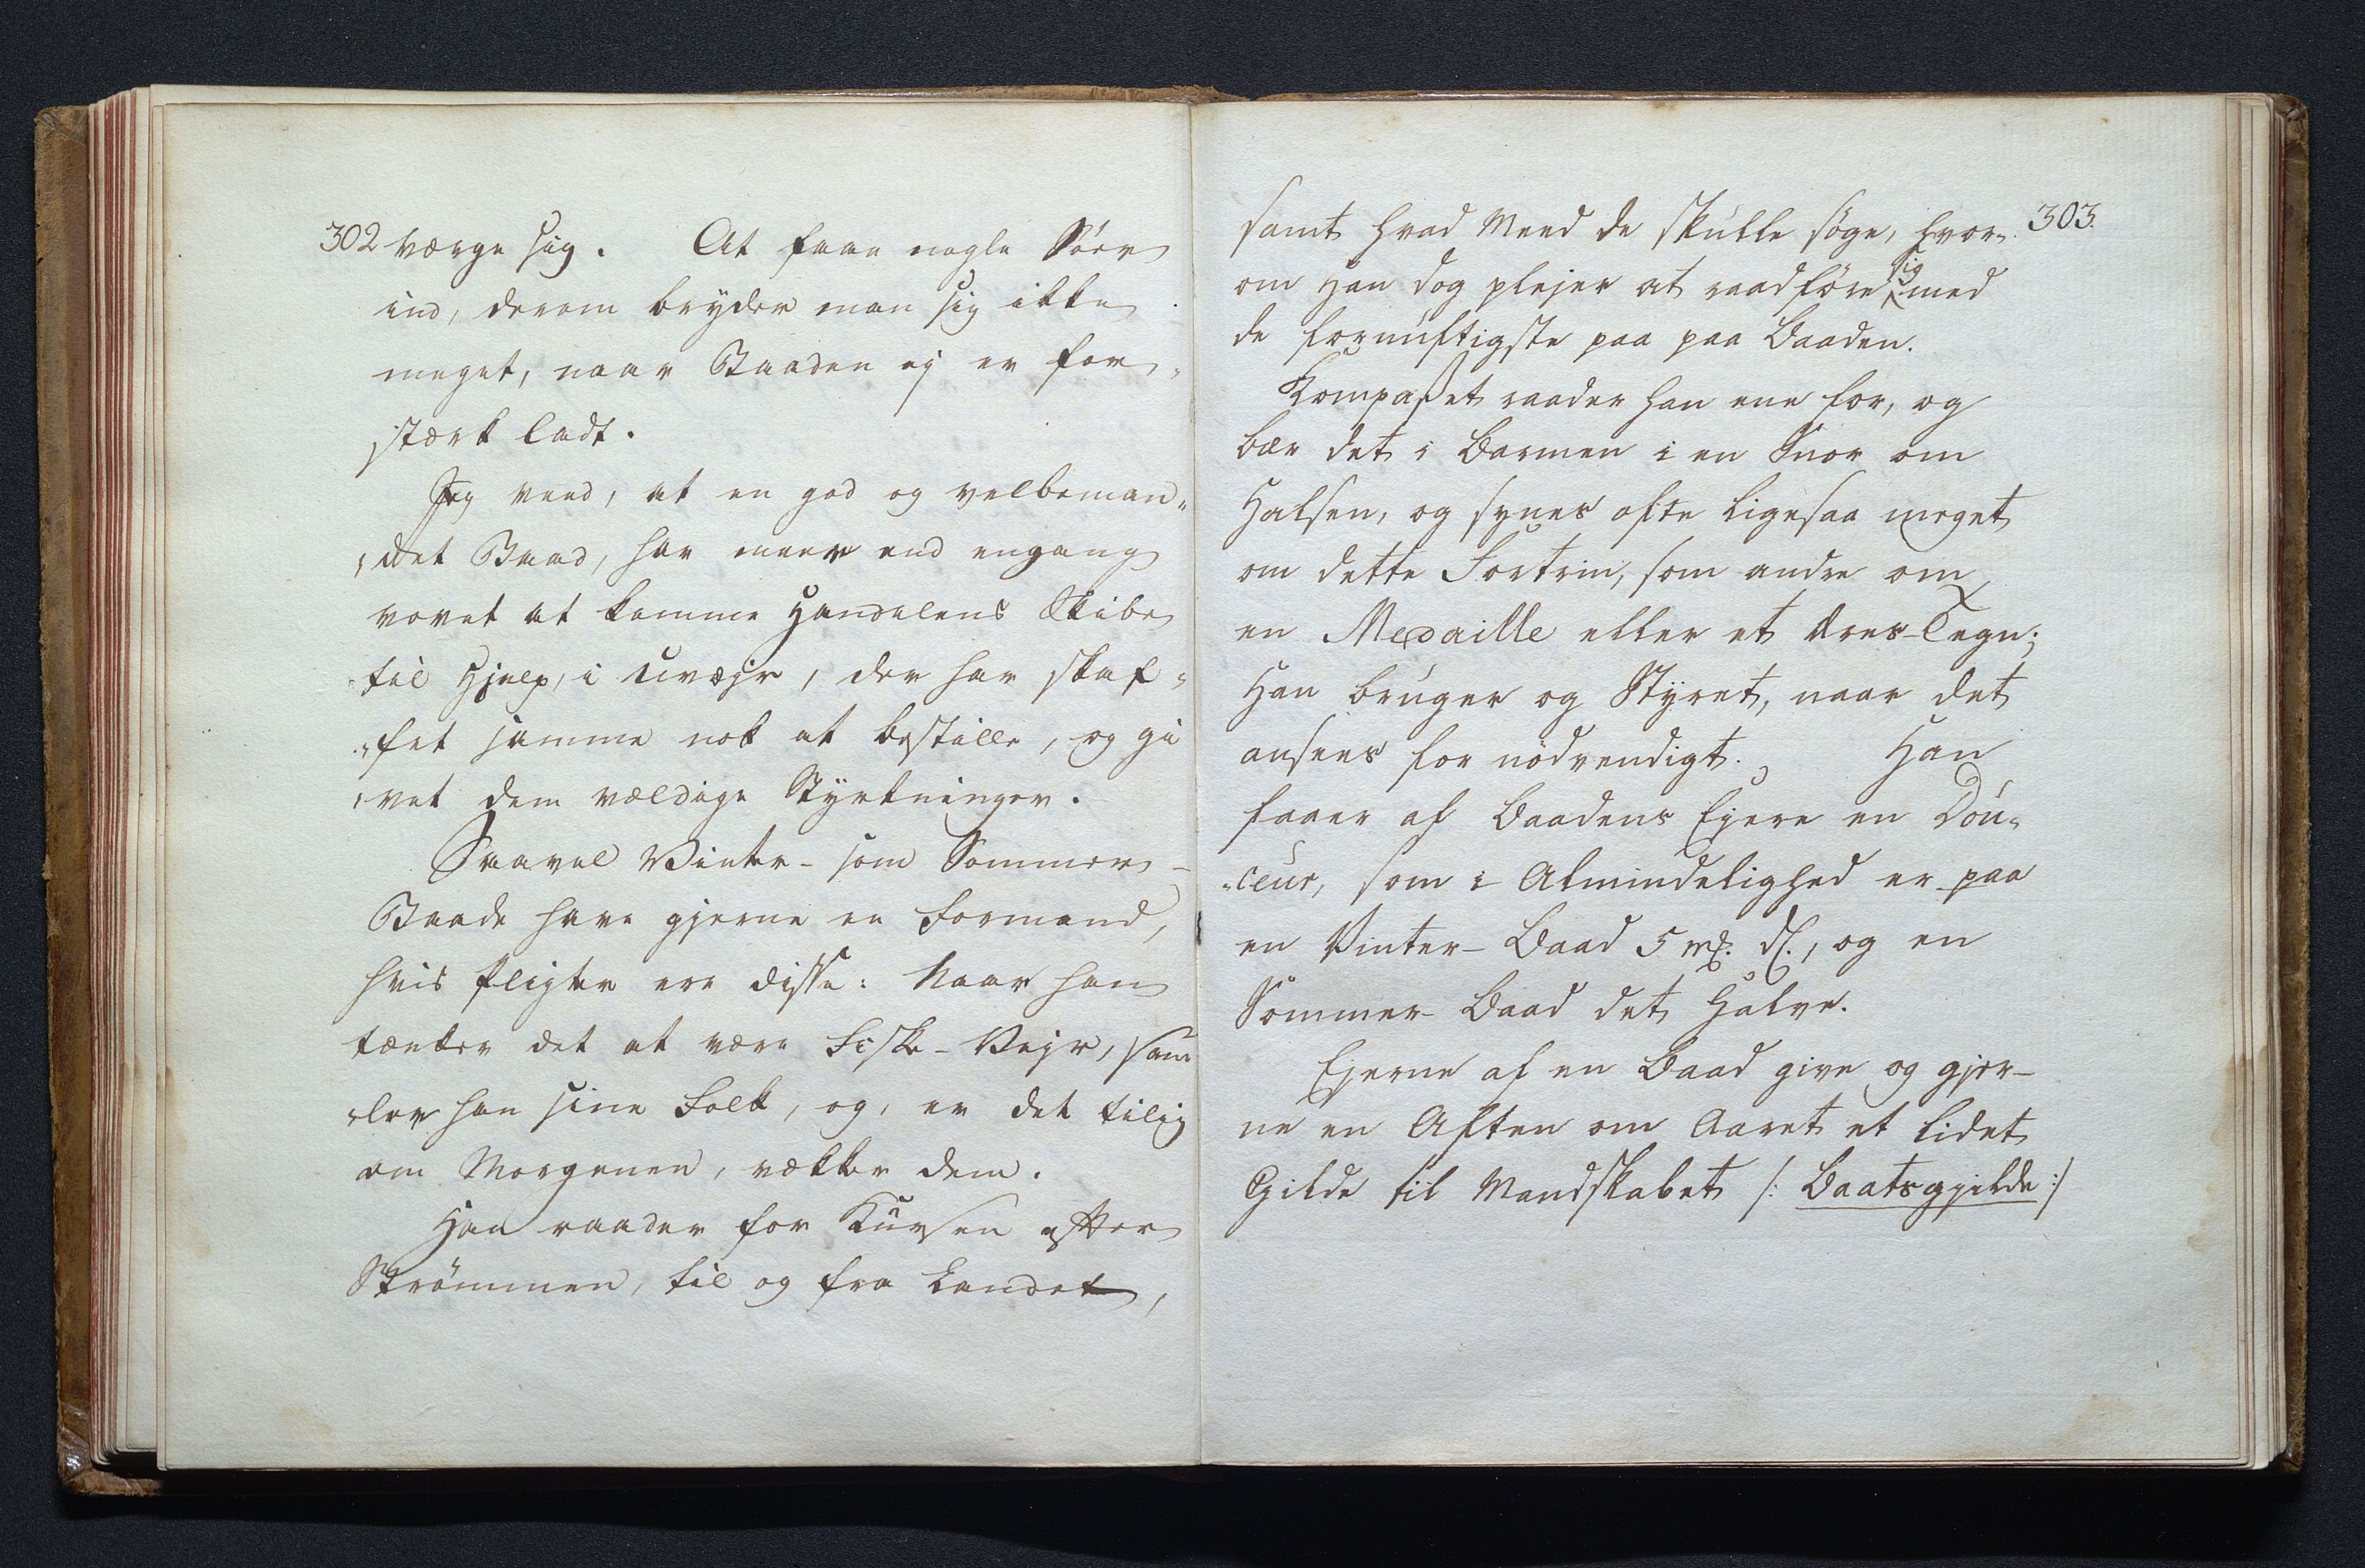 302 værge sig. At faae nogle Söer
ind, derom bryder man sig ikke
meget, naar Baaden ej er for
stærk ladt.
Jeg veed, at en god og velbeman„
„det Baad, har meer end engang
vovet at komme Handelens Skibe
til Hjelp, i Uvejr, der har skaf„
„fet samme nok at bestille, og gi
„vet dem vældige Styrtninger.
Saavel Vinter- som Sommer-
Baade have gjerne en Formand,
hvis Pligter ere disse: Naar han
tænker det at være Fiske-Vejr, sam
„ler han sine Folk, og, er det tilig
om Morgenen, vækker dem.
Han raader for Kursen efter
Strömmen, til og fra Landet,
samt hvad Meed de skulle söge, hvor„ 303.
om Han dog plejer at raadföre sig med
de fornuftigste paa paa Baaden.
Kompasset raader han ene for, og
bær det i Barmen i en Snor om
Halsen, og synes ofte ligesaa meget
om dette Fortrin, som andre om
en Medaille eller et Æres-Tegn;
Han bruger og Styret, naar det
ansees for nödvendigt. Han
faaer af Baadens Ejere en Dou„
„ceur, som i Almindelighed er paa
en Vinter-Baad 5 mk. dl., og en
Sommer-Baad det Halve.
Ejerne af en Baad give og gjer-
ne en Aften om Aaret et lidet
Gilde til Mandskabet /: Baatsgjilde :/